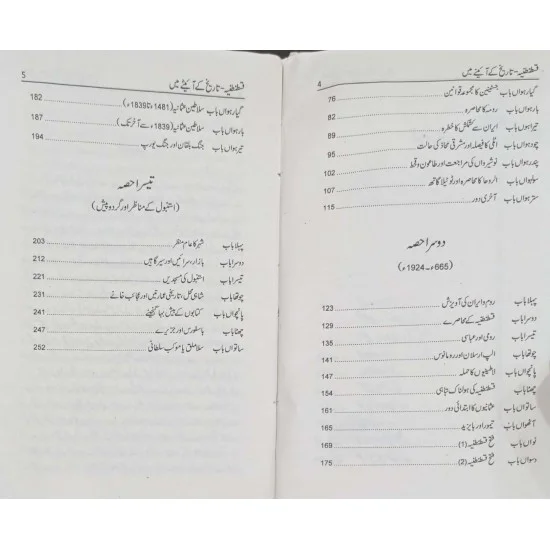 قسطنطنیہ - تاریخ کے آئینے میں 4
گیارہواں باب جسٹنین کا مجموعہ قوانین 76
بارہواں باب روم کا محاصرہ 82
تیرہواں باب ایران سے کشمکش کا خطرہ 89
چودہواں باب اٹلی کا فیصلہ اور مشرقی محاذ کی حالت 95
پندرہواں باب نوشیرواں کی مراجعت اور طاعون و قحط 102
سولہواں باب الروحا کا محاصرہ اور ٹوٹیلا گاتھ 107
سترہواں باب آخری دور 115
دوسرا حصہ
(665ء-1924ء)
پہلا باب روم و ایران کی آویزش 123
دوسرا باب قسطنطنیہ کے محاصرے 129
تیسرا باب رومی اور عباسی 135
چوتھا باب الپ ارسلان اور رومانوس 141
پانچواں باب لاطینیوں کا حملہ 147
چھٹا باب قسطنطنیہ کی ہولناک تباہی 154
ساتواں باب عثمانیوں کا ابتدائی دور 161
آٹھواں باب تیمور اور بایزید 165
نواں باب فتح قسطنطنیہ (1) 169
دسواں باب فتح قسطنطنیہ (2) 175
قسطنطنیہ - تاریخ کے آئینے میں 5
گیارہواں باب سلاطین عثمانیہ (1481ء تا 1839ء) 182
بارہواں باب سلاطین عثمانیہ (1839ء سے آخر تک) 187
تیرہواں باب جنگ بلقان اور جنگ یورپ 194
تیسرا حصہ
(استنبول کے مناظر اور گردوپیش)
پہلا باب شہر کا عام منظر 203
دوسرا باب بازار، سرائیں اور سیرگاہیں 212
تیسرا باب استنبول کی مسجدیں 221
چوتھا باب شاہی محل، تاریخی عمارتیں اور عجائب خانے 231
پانچواں باب کتابوں کے بیش بہا گنجینے 241
چھٹا باب باسفورس اور جزیرے 247
ساتواں باب سلاملق یا موکب سلطانی 252